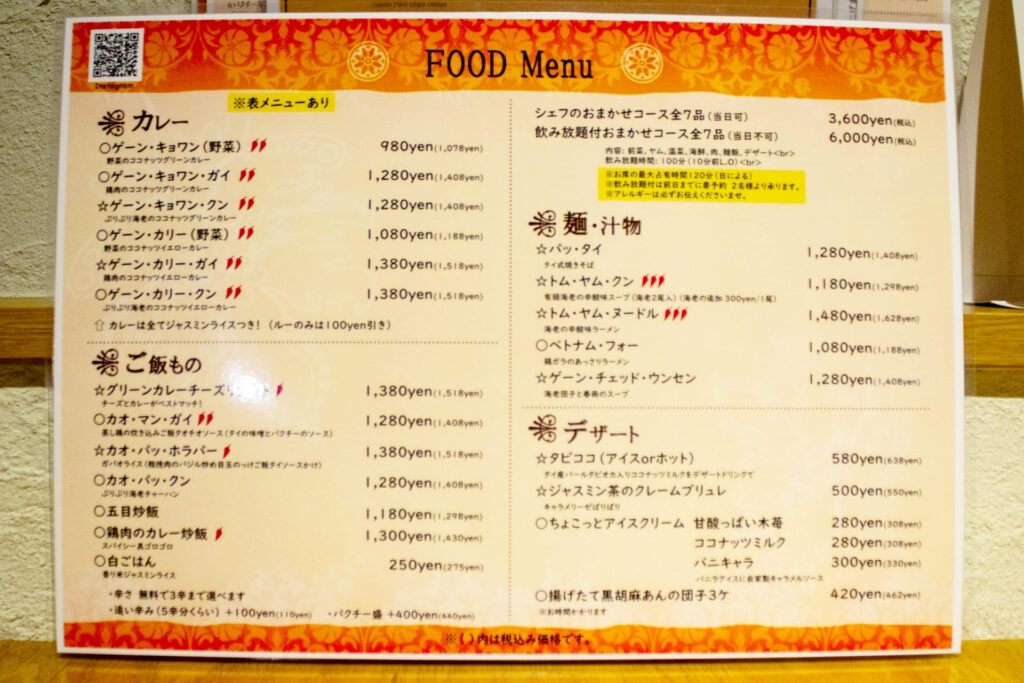 Instagram
FOOD Menu
※表メニューあり
カレー
○ゲーン・キョワン(野菜) 980yen(1,078yen)
野菜のココナッツグリーンカレー
○ゲーン・キョワン・ガイ 1,280yen(1,408yen)
鶏肉のココナッツグリーンカレー
☆ゲーン・キョワン・クン 1,280yen(1,408yen)
ぷりぷり海老のココナッツグリーンカレー
○ゲーン・カリー(野菜) 1,080yen(1,188yen)
野菜のココナッツイエローカレー
☆ゲーン・カリー・ガイ 1,380yen(1,518yen)
鶏肉のココナッツイエローカレー
○ゲーン・カリー・クン 1,380yen(1,518yen)
ぷりぷり海老のココナッツイエローカレー
⇧ カレーは全てジャスミンライスつき!(ルーのみは100yen引き)
ご飯もの
☆グリーンカレーチーズリ 1,380yen(1,518yen)
チーズとカレーがベストマッチ!
○カオ・マン・ガイ 1,280yen(1,408yen)
蒸し鶏の炊き込みご飯タオチオソース(タイの味噌とパクチーのソース)
☆カオ・パッ・ホラパー 1,380yen(1,518yen)
ガパオライス(粗挽肉のバジル炒め目玉のっけご飯タイソースかけ)
○カオ・パッ・クン 1,280yen(1,408yen)
ぷりぷり海老チャーハン
○五目炒飯 1,180yen(1,298yen)
○鶏肉のカレー炒飯 1,300yen(1,430yen)
スパイシー具ゴロゴロ
○白ごはん 250yen(275yen)
香り米ジャスミンライス
・辛さ 無料で3辛まで選べます
・追い辛み(5辛分くらい) +100yen(110yen) ・パクチー盛 +400yen(440yen)
シェフのおまかせコース全7品(当日可) 3,600yen(税込)
飲み放題付おまかせコース全7品(当日不可) 6,000yen(税込)
内容: 前菜、ヤム、温菜、海鮮、肉、麺飯、デザート<br>
飲み放題時間: 100分(10分前L.O)<br>
※お席の最大占有時間120分(日による)
※飲み放題付は前日までに要予約 2名様より承ります。
※アレルギーは必ずお伝えくださいませ。
麺・汁物
☆パッ・タイ 1,280yen(1,408yen)
タイ式焼きそば
☆トム・ヤム・クン 1,180yen(1,298yen)
有頭海老の辛酸味スープ(海老2尾入)(海老の追加 300yen/1尾)
☆トム・ヤム・ヌードル 1,480yen(1,628yen)
海老の辛酸味ラーメン
○ベトナム・フォー 1,080yen(1,188yen)
鶏ガラのあっさりラーメン
☆ゲーン・チェッド・ウンセン 1,280yen(1,408yen)
海老団子と春雨のスープ
デザート
☆タピココ(アイスorホット) 580yen(638yen)
タイ産パールタピオカ入りココナッツミルクをデザートドリンクで
☆ジャスミン茶のクレームブリュレ 500yen(550yen)
キャラメリーゼぱりぱり
○ちょこっとアイスクリーム 甘酸っぱい木苺 280yen(308yen)
ココナッツミルク 280yen(308yen)
バニキャラ 300yen(330yen)
バニラアイスに自家製キャラメルソース
○揚げたて黒胡麻あんの団子3ケ 420yen(462yen)
※お時間かかります
※( )内は税込み価格です。